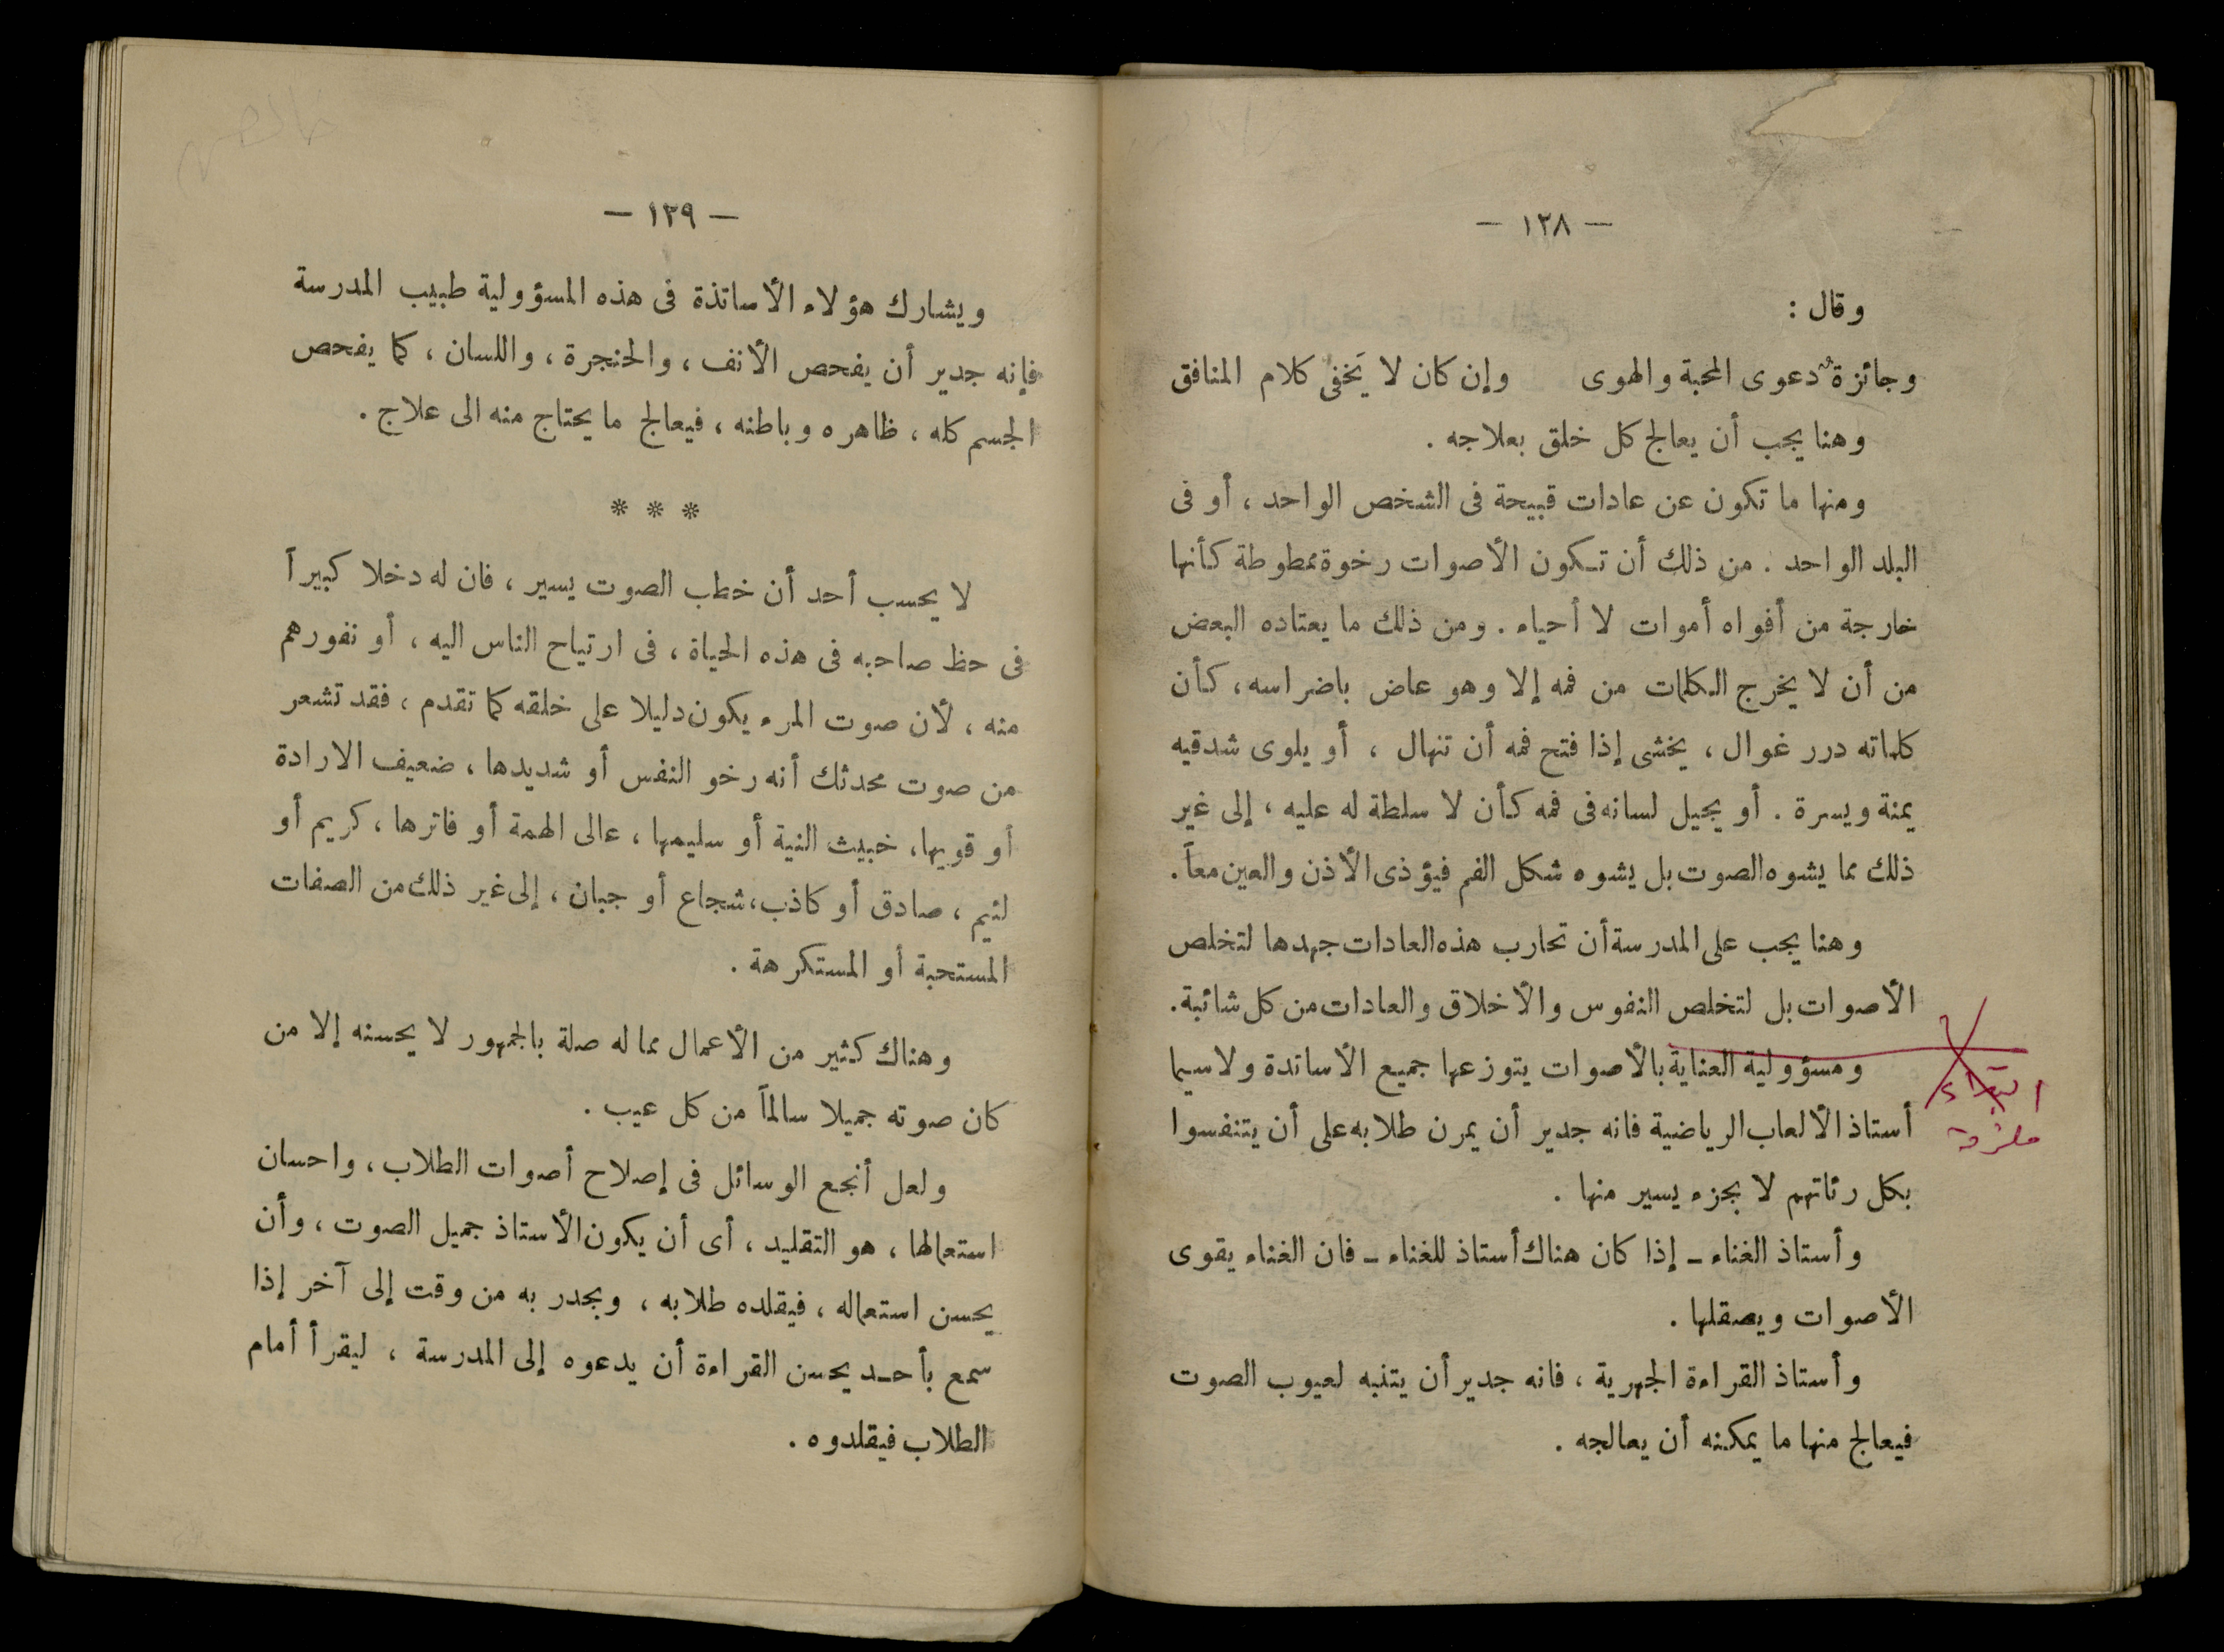 — ١٣٨ —
وقال :
وجائزةٌ دعوى المحبة والهوى وإن كان لا يَخفى كلام المنافق
وهنا يجب أن يعالج كل خلق بعلاجه .
ومنها ما تكون عن عادات قبيحة فى الشخص الواحد ، أو فى
البلد الواحد . من ذلك أن تكون الأصوات رخوة ممطوطة كأنها
خارجة من أفواه أموات لا أحياء . ومن ذلك ما يعتاده البعض
من أن لا يخرج الكلمات من فمه إلا وهو عاض باضراسه ، كأن
كلماته درر غوال ، يخشى إذا فتح فمه أن تنهال ، أو يلوى شدقيه
يمنة ويسرة . أو يجيل لسانه فى فمه كأن لا سلطة له عليه ، إلى غير
ذلك مما يشوه الصوت بل يشوه شكل الفم فيؤذى الأذن والعين معاً .
وهنا يجب على المدرسة أن تحارب هذه العادات جهدها لتخلص
الأصوات بل لتخلص النفوس والأخلاق والعادات من كل شائبة .
ومسؤولية العناية بالأصوات يتوزعها جميع الأساتذة ولاسيما
أستاذ الألعاب الرياضية فانه جدير أن يمرن طلابه على أن يتنفسوا
بكل رئاتهم لا بجزء يسير منها .
وأستاذ الغناء ــ إذا كان هناك أستاذ للغناء ــ فان الغناء يقوى
الأصوات ويصقلها .
وأستاذ القراءة الجهرية ، فانه جدير أن يتنبه لعيوب الصوت
فيعالج منها ما يمكنه أن يعالجه .
— ١٣٩ —
ويشارك هؤلاء الأساتذة فى هذه المسؤولية طبيب المدرسة
فإنه جدير أن يفحص الأنف ، والحنجرة ، واللسان ، كما يفحص
الجسم كله ، ظاهره وباطنه ، فيعالج ما يحتاج منه الى علاج .
* * *
لا يحسب أحد أن خطب الصوت يسير ، فان له دخلا كبيراً
فى حظ صاحبه فى هذه الحياة ، فى ارتياح الناس اليه ، أو نفورهم
منه ، لأن صوت المرء يكون دليلا على خلقه كما تقدم ، فقد تشعر
من صوت محدثك أنه رخو النفس أو شديدها ، ضعيف الارادة
أو قويها ، خبيث النية أو سليمها ، عالى الهمة أو فاترها ، كريم أو
لئيم ، صادق أو كاذب ، شجاع أو جبان ، إلى غير ذلك من الصفات
المستحبة أو المستكرهة .
وهناك كثير من الأعمال مما له صلة بالجمهور لا يحسنه إلا من
كان صوته جميلا سالماً من كل عيب .
ولعل أنجع الوسائل فى إصلاح أصوات الطلاب ، واحسان
استعمالها ، هو التقليد ، أى أن يكون الأستاذ جميل الصوت ، وأن
يحسن استعماله ، فيقلده طلابه ، ويجدر به من وقت إلى آخر إذا
سمع بأحد يحسن القراءة أن يدعوه إلى المدرسة ، ليقرأ أمام
الطلاب فيقلدوه .